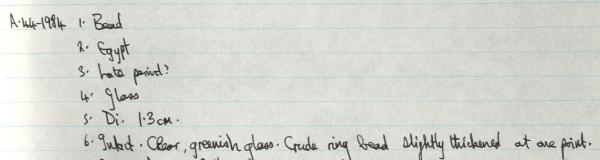 A·44-1984 1. Bead
2. Egypt
3. Late period?
4. Glass
5. Di. 1·3 cm.
6. Intact. Clear, greenish glass. Crude ring bead slightly thickened at one point.